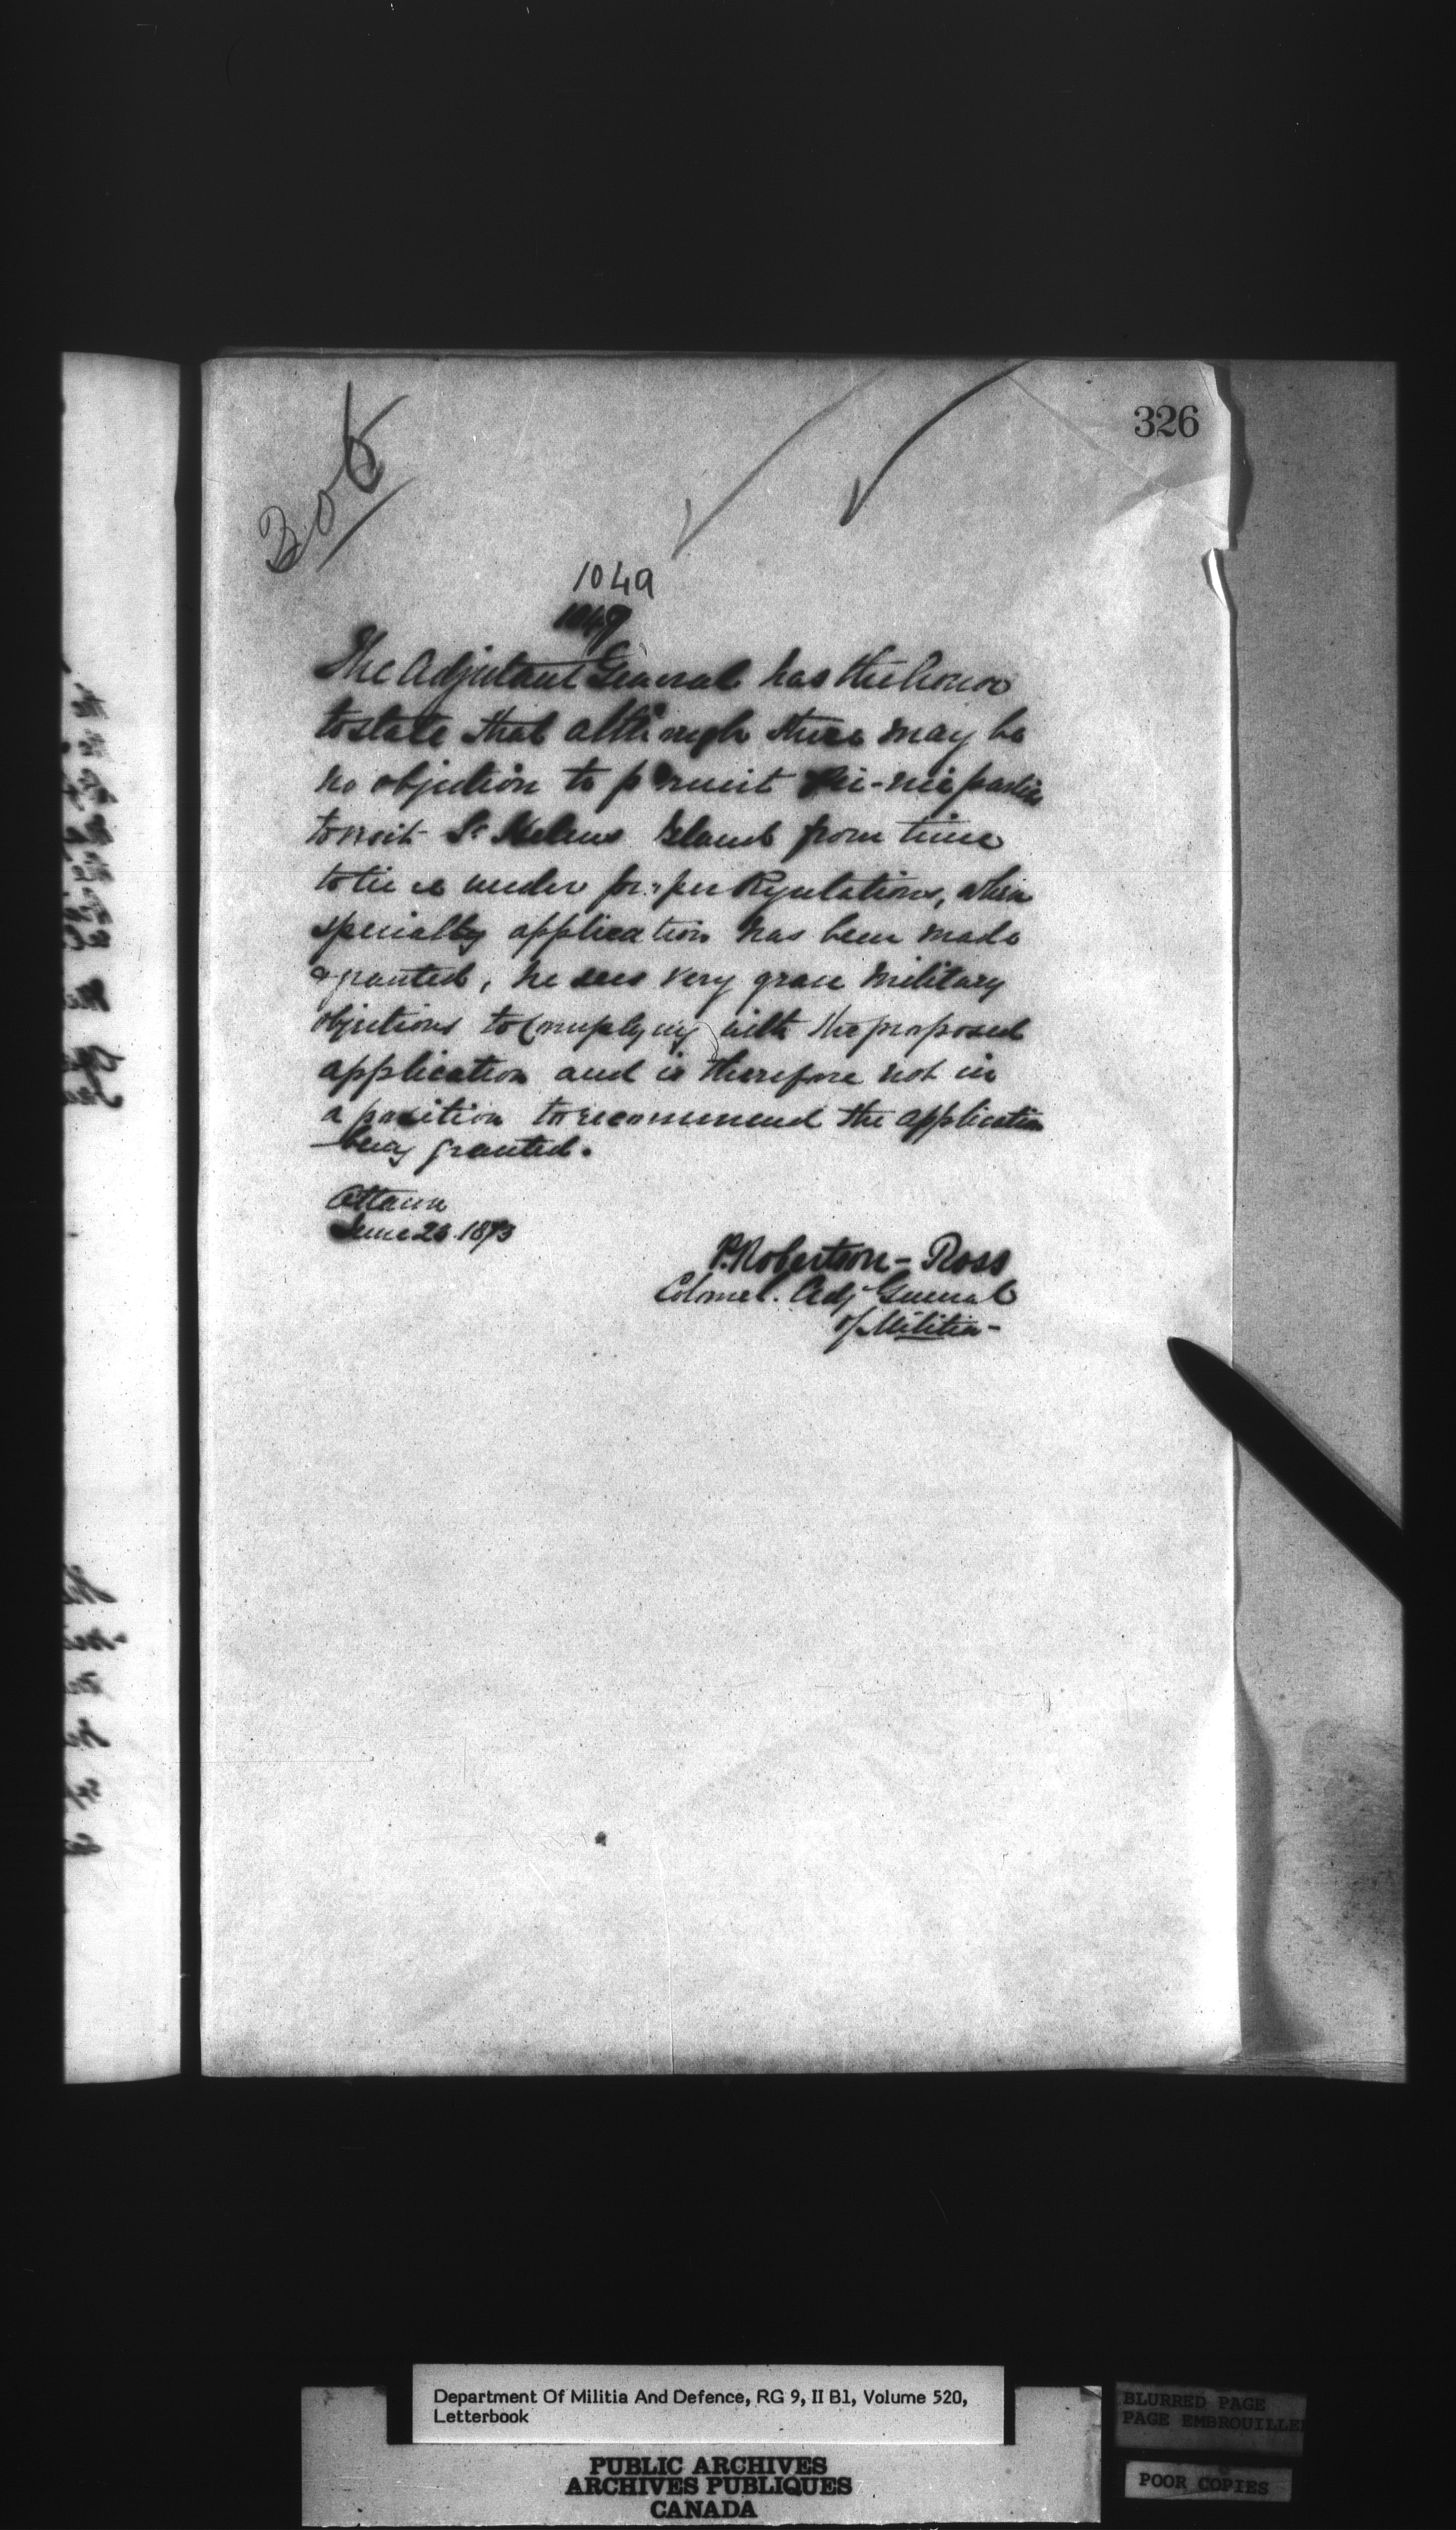 326
306
1049
1049
The Adjutant General has the honor
to state that although there may be
no objection to permit Pic-nic parties
to visit St Helens Island from time
to time under proper Regulations, when
specially application has been made
& granted, he sees very grave Military
objections to complying with the proposed
application and is therefore not in
a position to recommend the application
being granted.
Ottawa
June 26 1873
P. Robertson-Ross
Colonel. Adj General
of Militia-
Department Of Militia And Defence, RG 9, II B1, Volume 520,
Letterbook
PUBLIC ARCHIVES
ARCHIVES PUBLIQUES
CANADA
BLURRED PAGE
PAGE EMBROUILLE
POOR COPIES